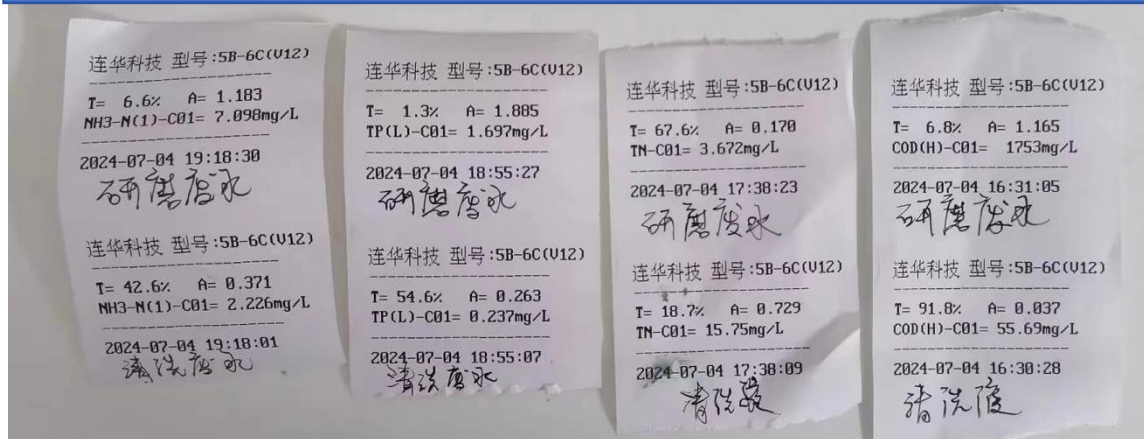 连华科技 型号:5B-6C(V12)
T= 6.6% A= 1.183
NH3-N(1)-C01= 7.098mg/L
2024-07-04 19:18:30
研磨废水
连华科技 型号:5B-6C(V12)
T= 42.6% A= 0.371
NH3-N(1)-C01= 2.226mg/L
2024-07-04 19:18:01
清洗废水
连华科技 型号:5B-6C(V12)
T= 1.3% A= 1.885
TP(L)-C01= 1.697mg/L
2024-07-04 18:55:27
研磨废水
连华科技 型号:5B-6C(V12)
T= 54.6% A= 0.263
TP(L)-C01= 0.237mg/L
2024-07-04 18:55:07
清洗废水
连华科技 型号:5B-6C(V12)
T= 67.6% A= 0.170
TN-C01= 3.672mg/L
2024-07-04 17:38:23
研磨废水
连华科技 型号:5B-6C(V12)
T= 18.7% A= 0.729
TN-C01= 15.75mg/L
2024-07-04 17:38:09
清洗液
连华科技 型号:5B-6C(V12)
T= 6.8% A= 1.165
COD(H)-C01= 1753mg/L
2024-07-04 16:31:05
研磨废水
连华科技 型号:5B-6C(V12)
T= 91.8% A= 0.037
COD(H)-C01= 55.69mg/L
2024-07-04 16:30:28
清洗液